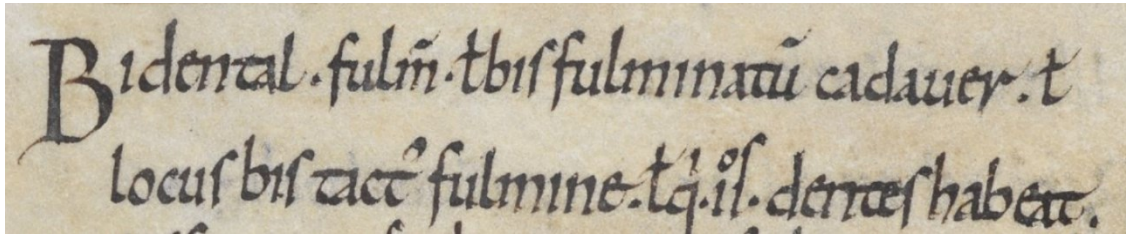 Bidental . fulm̄ . ƚ bis fulminatū cadauer . ƚ
locus bis tactꝰ fulmine . ƚ q̇ . iͦſ . dentes habeat .